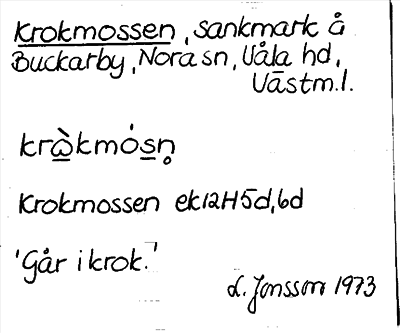 Krokmossen, sankmark å
Buckarby, Nora sn, Våla hd,
Västm.l.
krɷ̀kmósn̥
Krokmossen ek12H5d,6d
'Går i krok.'
L. Jonsson 1973